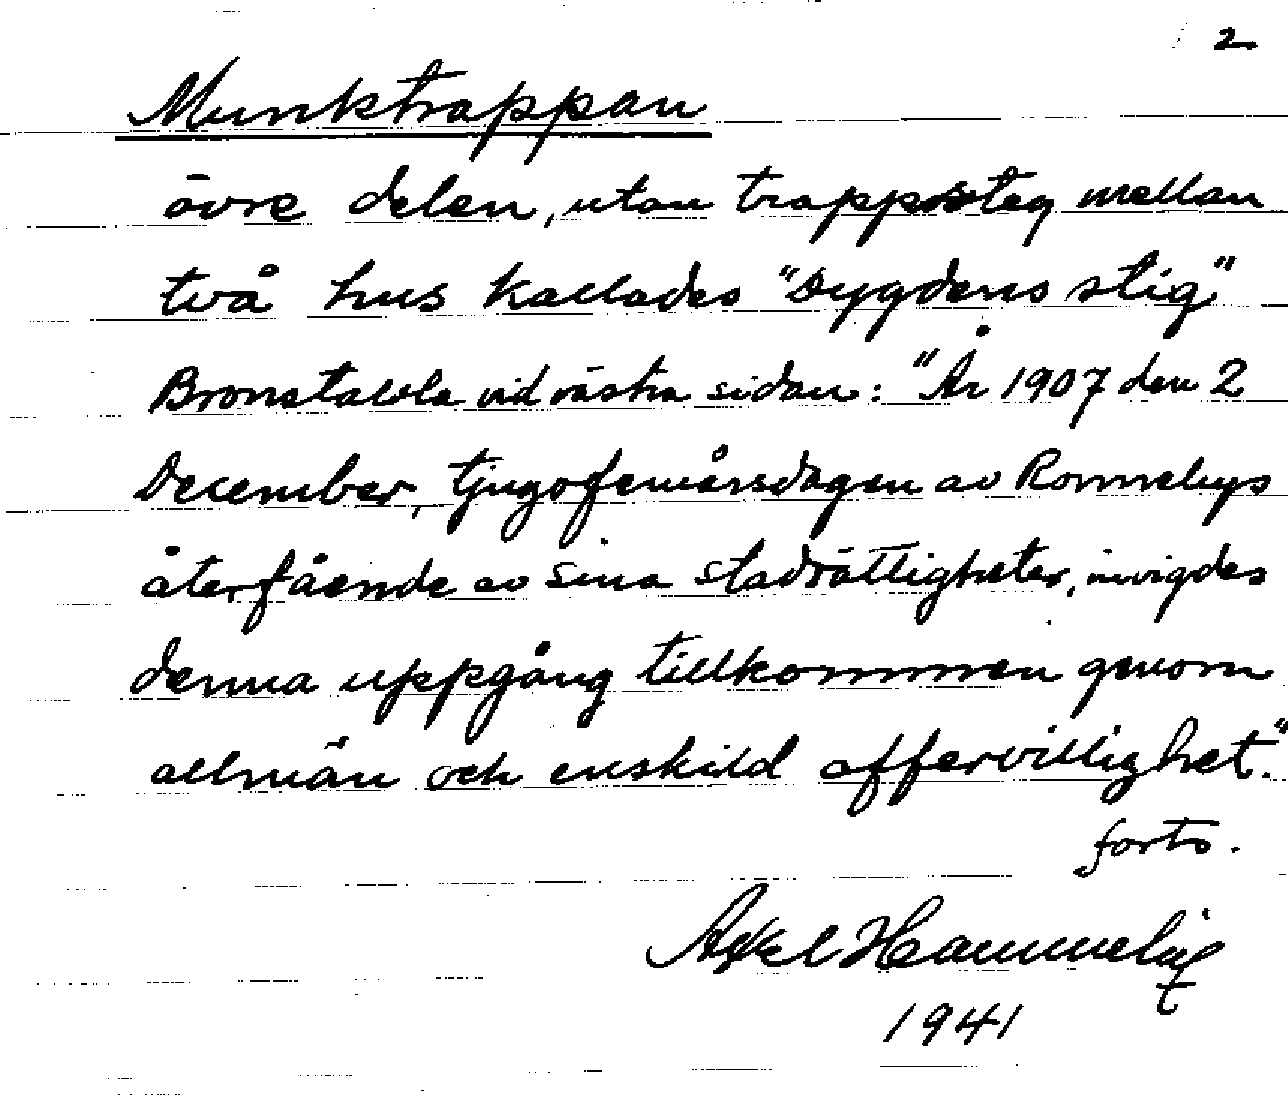 2
Munktrappan
övre delen, utan trappsteg mellan
två hus kallades "Dygdens stig"
Bronstavla vid västra sidan: "År 1907 den 2
December, tjugofemårsdagen av Ronnebys
återfående av sina stadrättigheter, invigdes
denna uppgång tillkommen genom
allmän och enskild offervillighet."
forts.
Axel Hammelin
1941